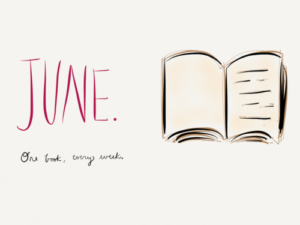 JUNE.
One book, every week.